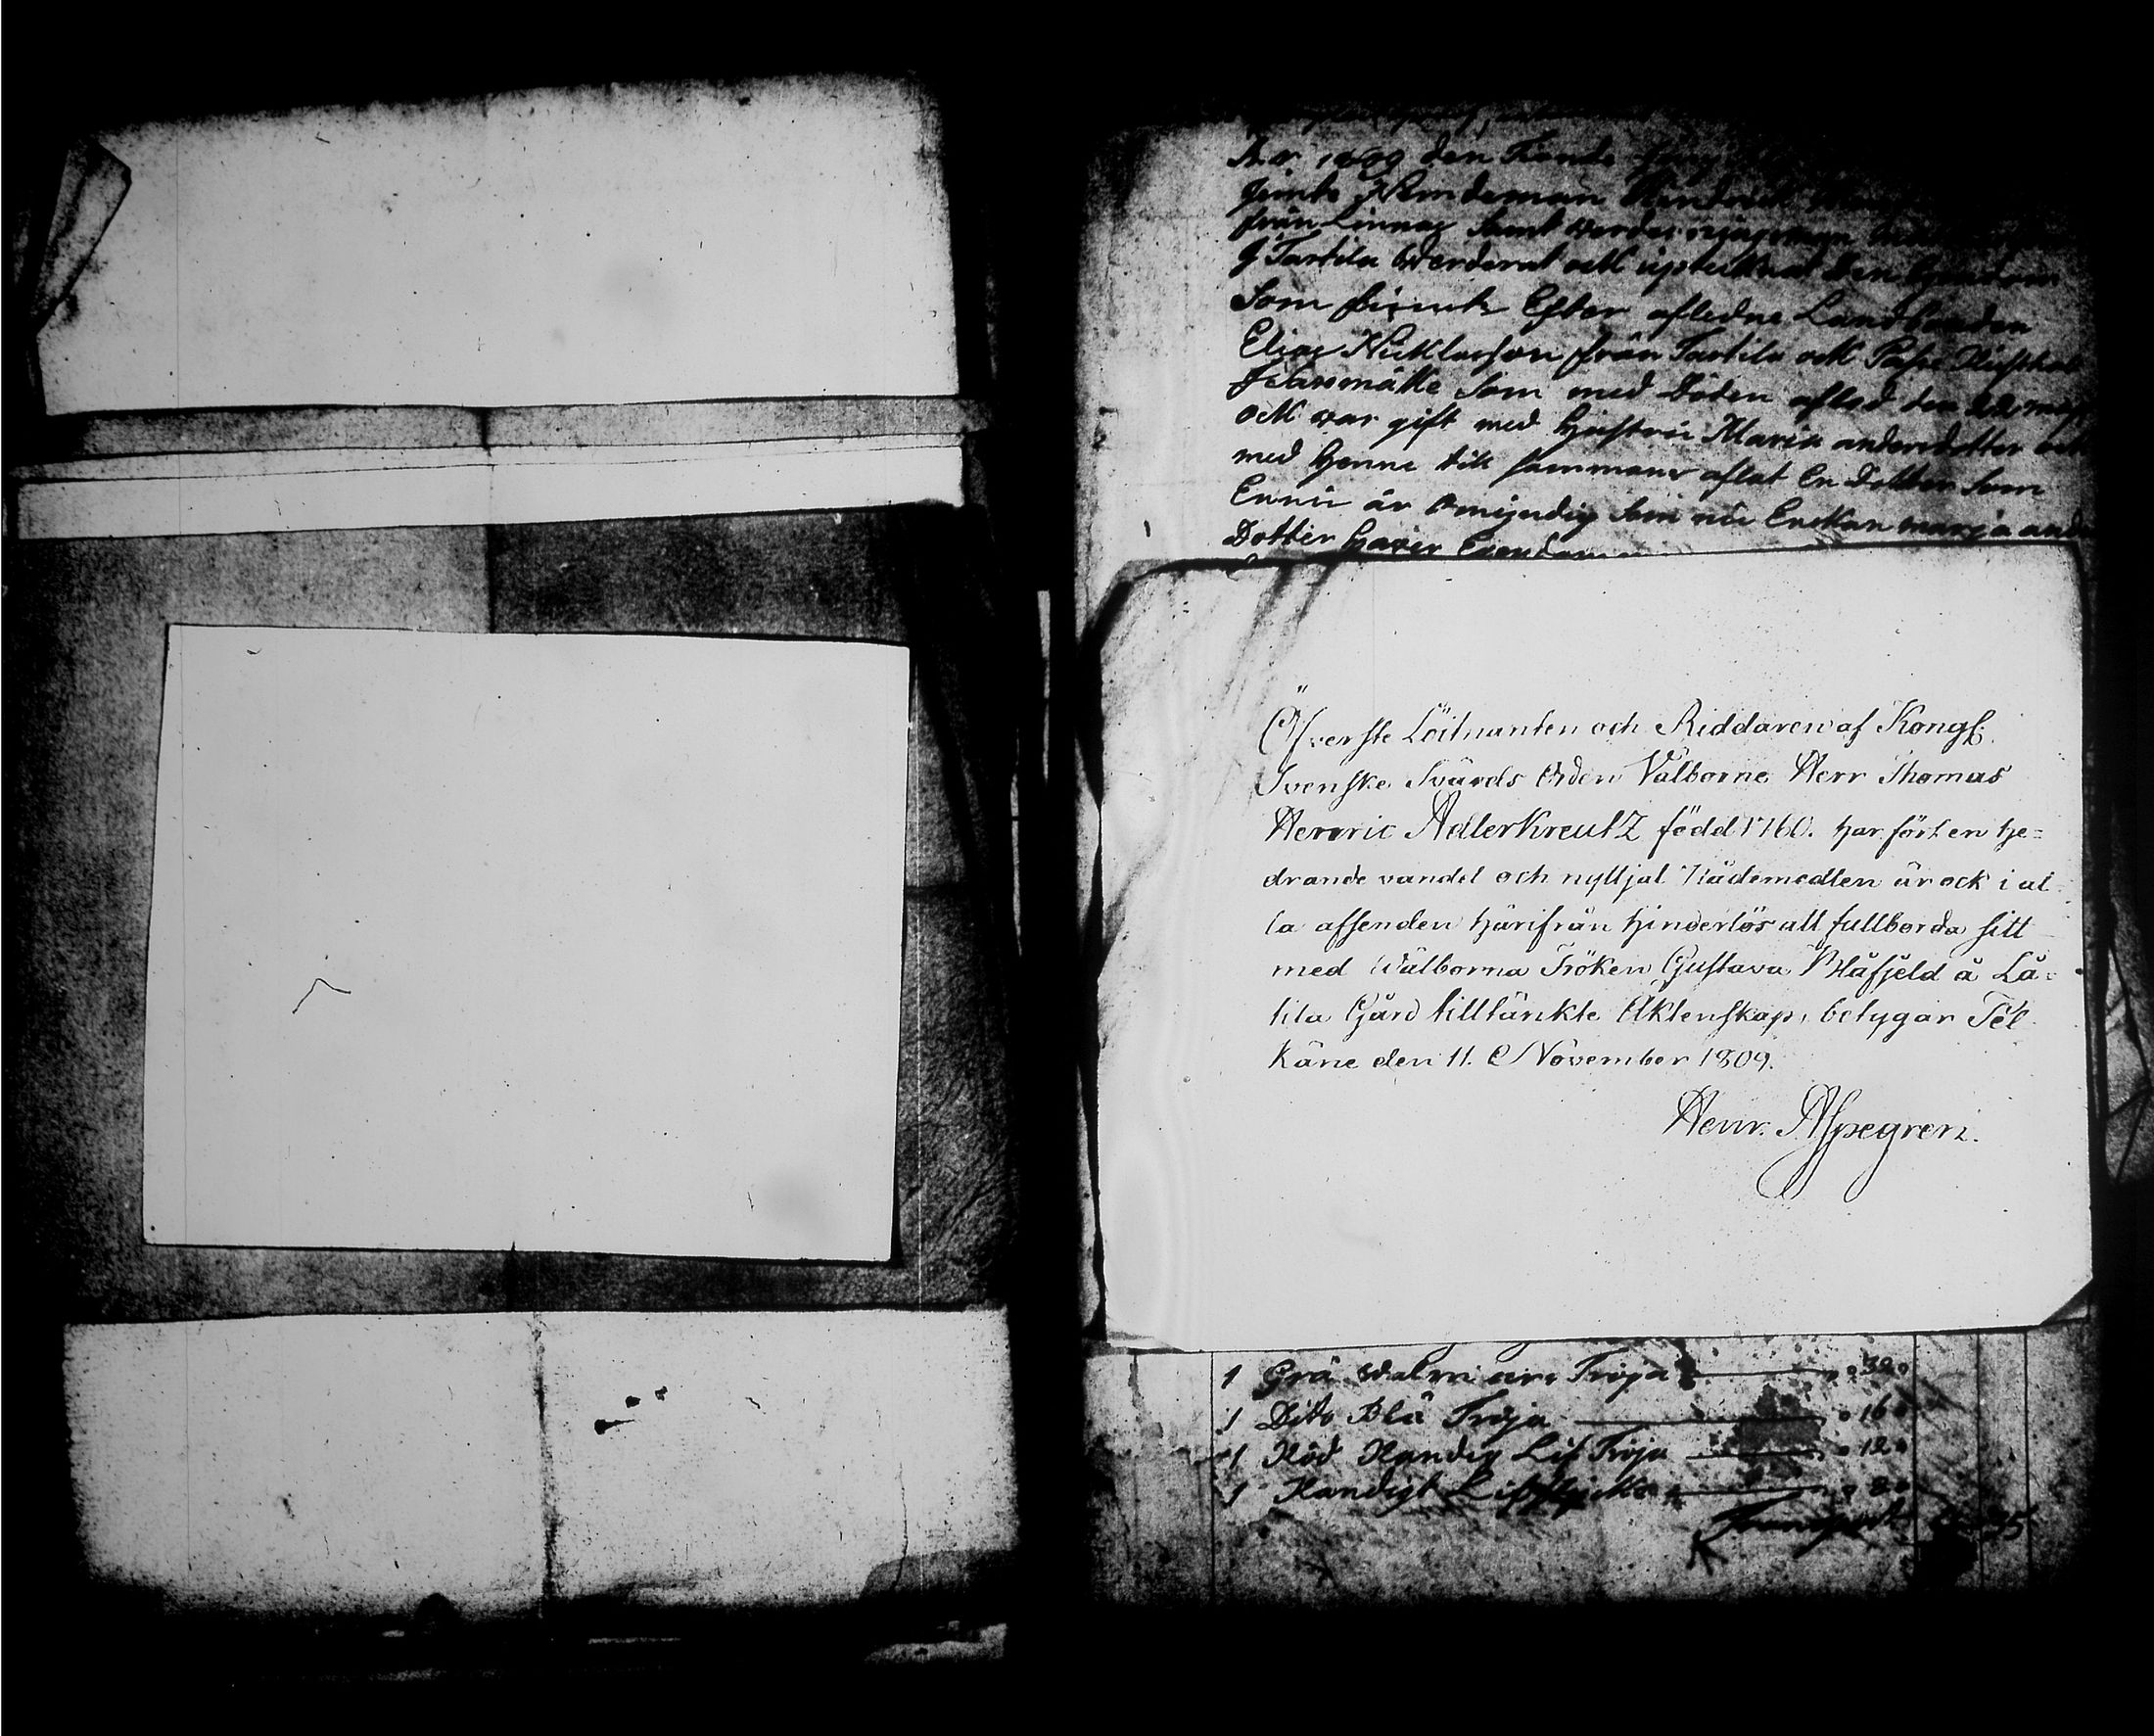 A:o 1809 den Tionde
från Linnaes Samt
J Tartila werderat ock uptecknat den Egendom
Som fins Efter afledne Landbonden
Elias Nicklasson från Tartila ock
som med Döden afled den 22
ock war gift med Hustru Maria andersdotter ock
med henne till sammans aflat En Dotter som
Ennu är omyndig som nu Enckan marja anders
Dotter
Öfverste Löitnanten och Riddaren af Kongl:
Svenske Svärds Orden Välborne Herr Thomas
Henric Adlerkreutz född 1760. har fört en he=
drande vandel och nyttjat Nådemedlen är ock i al-
la afseenden härifrån hinderlös att fullborda sitt
med Wälborna Fröken Gustava Blåfjeld å Lå-
tila Gård tilltänkte Äktenskap, betygar Fél
käne den 11. November 1809.
Henr. Aspegren.
1 Grå walmars Tröja 32
1 Dito Blå Tröja 16
1 Röd Randig Lif Tröja 12
1 Randigt Lifstycke 8
Transport